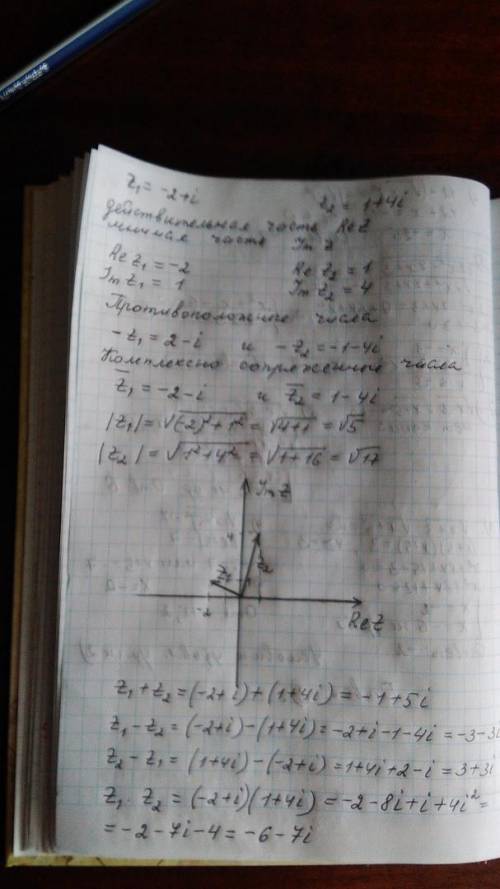 z₁ = -2+i z₂ = 1+4i
действительная часть Re z
мнимая часть Im z
Re z₁ = -2 Re z₂ = 1
Im z₁ = 1 Im z₂ = 4
Противоположные числа
-z₁ = 2-i и -z₂ = -1-4i
Комплексно сопряженные числа
z̅₁ = -2-i и z̅₂ = 1-4i
|z₁| = √((-2)²+1²) = √(4+1) = √5
|z₂| = √(1²+4²) = √(1+16) = √17
Im z
4
z₁ z₂
-2
Re z
z₁+z₂ = (-2+i)+(1+4i) = -1+5i
z₁-z₂ = (-2+i)-(1+4i) = -2+i-1-4i = -3-3i
z₂-z₁ = (1+4i)-(-2+i) = 1+4i+2-i = 3+3i
z₁·z₂ = (-2+i)(1+4i) = -2-8i+i+4i² =
= -2-7i-4 = -6-7i